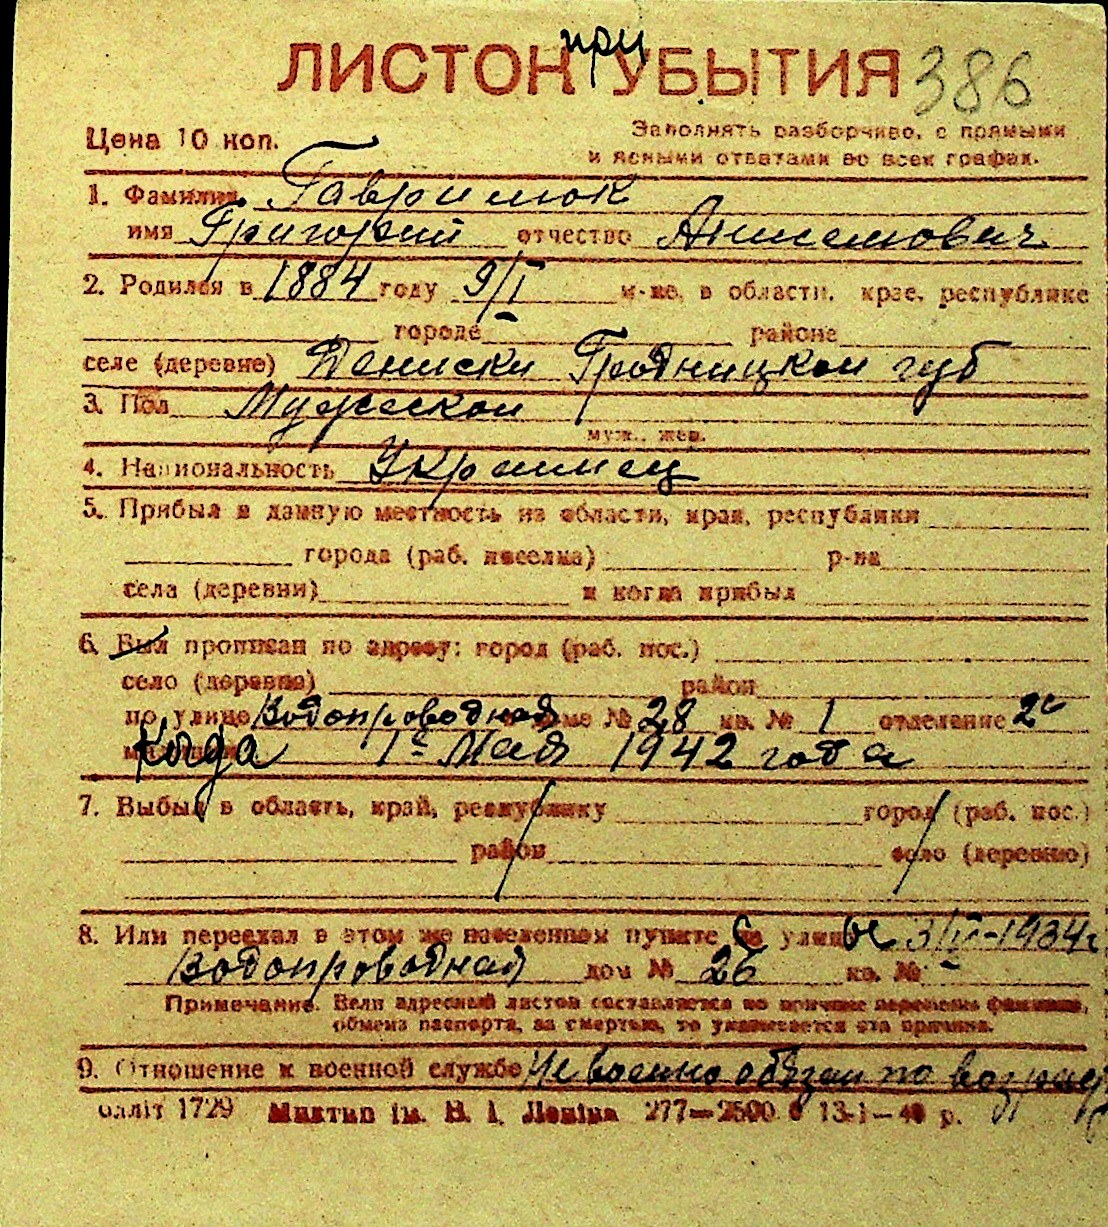 ЛИСТОК при УБЫТИЯ 386
Цена 10 коп.
Заполнять разборчиво, с прямыми
и ясными ответами во всех графах.
1. Фамилия Гаврилюк
имя Григорий отчество Анисимович
2. Родился в 1884 году 9/I м-це, в области, крае, республике
городе - районе
селе (деревне) Дениски Гродницкой губ
3. Пол Мужской
муж., жен.
4. Национальность Украинец
5. Прибыл в данную местность из области, края, республики
города (раб. поселка) р-на
села (деревни) и когда прибыл
6. Был прописан по адресу: город (раб. пос.)
село (деревня) район
по улице Водопроводная доме № 28 кв. № 1 отделение 2е
милиции Когда 1го Мая 1942 года
7. Выбыл в область, край, республику город (раб. пос.)
район село (деревню)
8. Или переехал в этом же населенном пункте с улицы с 3/IV-1934г
Водопроводная дом № 26 кв. № -
Примечание. Если адресный листок составляется по причине перемены фамилии,
обмена паспорта, за смертью, то указывается эта причина.
9. Отношение к военной службе Не военно обязан по возрасту
бліт 1729 Миктип ім. В. І. Леніна 277—2500 13-1—40 р.